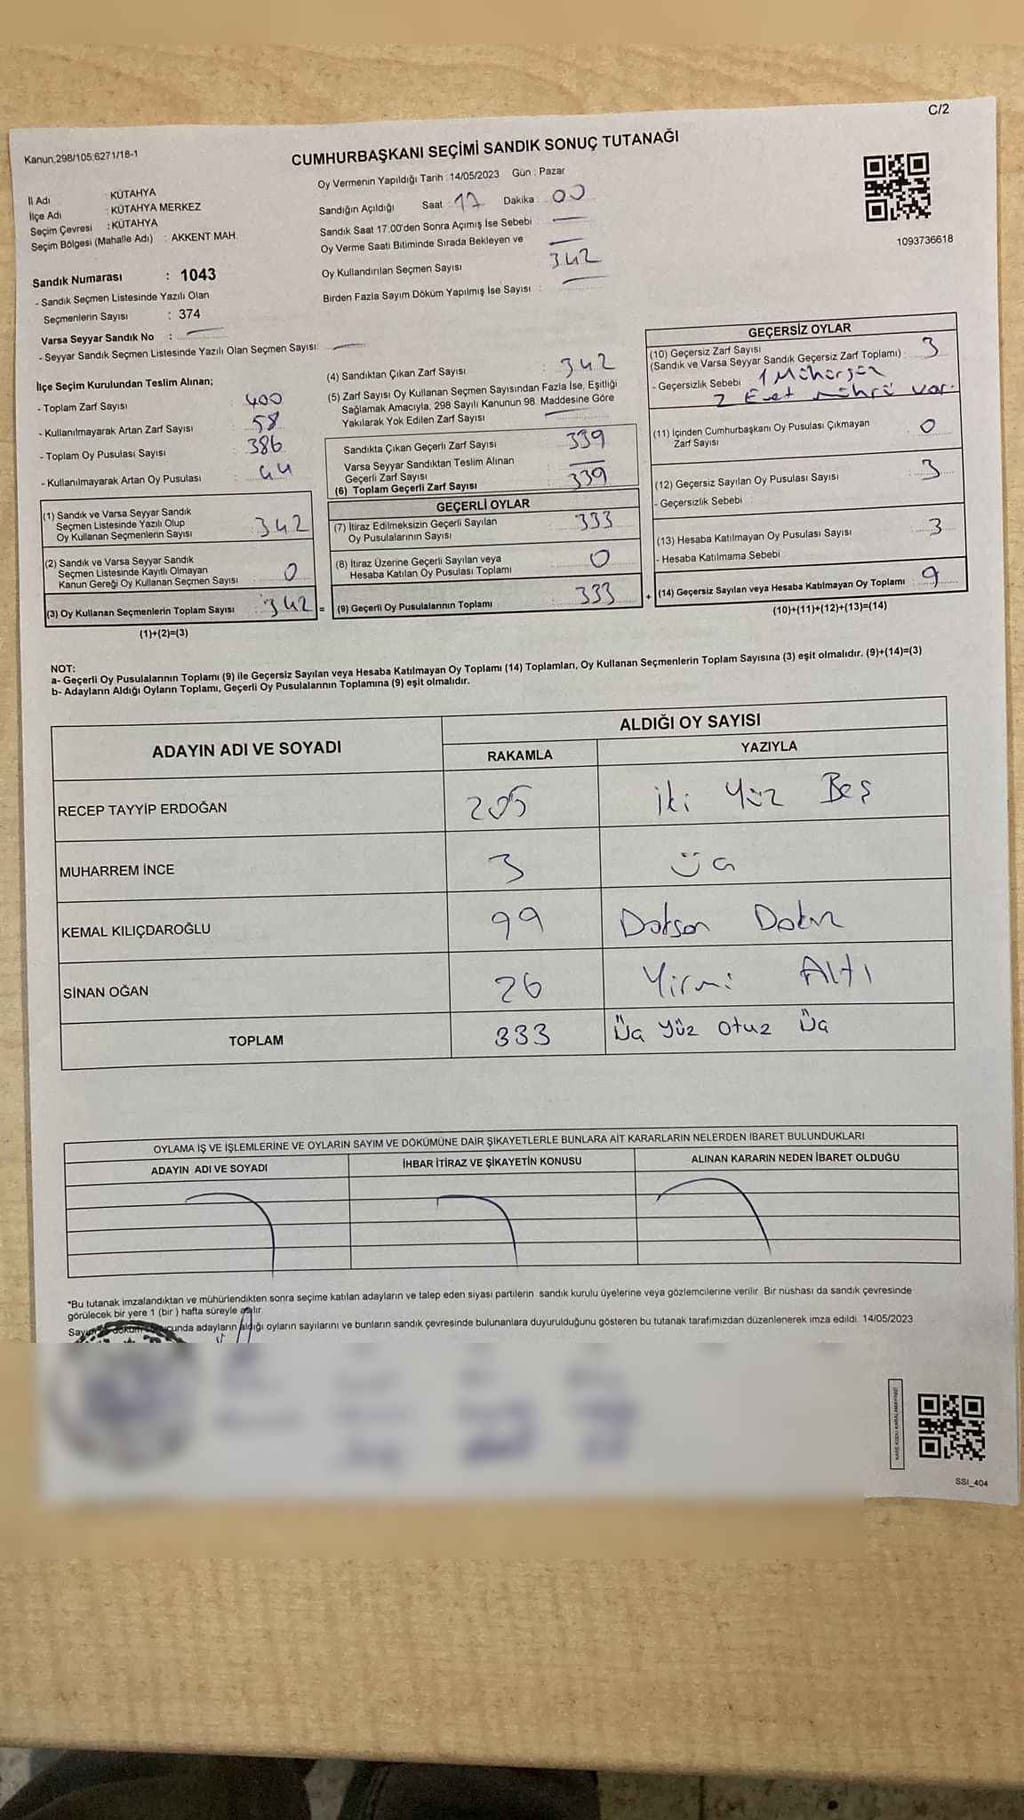 C/2
Kanun;298/105;6271/18-1
CUMHURBAŞKANI SEÇİMİ SANDIK SONUÇ TUTANAĞI
İl Adı : KÜTAHYA
İlçe Adı : KÜTAHYA MERKEZ
Seçim Çevresi : KÜTAHYA
Seçim Bölgesi (Mahalle Adı) : AKKENT MAH.
Oy Vermenin Yapıldığı Tarih : 14/05/2023 Gün : Pazar
Sandığın Açıldığı Saat 17 Dakika 00
Sandık Saat 17.00'den Sonra Açımış İse Sebebi
Oy Verme Saati Bitiminde Sırada Bekleyen ve
Oy Kullandırılan Seçmen Sayısı 342
Birden Fazla Sayım Döküm Yapılmış İse Sayısı :
1093736618
Sandık Numarası : 1043
- Sandık Seçmen Listesinde Yazılı Olan
Seçmenlerin Sayısı : 374
Varsa Seyyar Sandık No :
- Seyyar Sandık Seçmen Listesinde Yazılı Olan Seçmen Sayısı:
İlçe Seçim Kurulundan Teslim Alınan;
- Toplam Zarf Sayısı 400
- Kullanılmayarak Artan Zarf Sayısı 58
- Toplam Oy Pusulası Sayısı 386
- Kullanılmayarak Artan Oy Pusulası 44
(1) Sandık ve Varsa Seyyar Sandık
Seçmen Listesinde Yazılı Olup
Oy Kullanan Seçmenlerin Sayısı 342
(2) Sandık ve Varsa Seyyar Sandık
Seçmen Listesinde Kayıtlı Olmayan
Kanun Gereği Oy Kullanan Seçmen Sayısı 0
(3) Oy Kullanan Seçmenlerin Toplam Sayısı 342 =
(1)+(2)=(3)
(4) Sandıktan Çıkan Zarf Sayısı : 342
(5) Zarf Sayısı Oy Kullanan Seçmen Sayısından Fazla İse, Eşitliği
Sağlamak Amacıyla, 298 Sayılı Kanunun 98. Maddesine Göre
Yakılarak Yok Edilen Zarf Sayısı
Sandıkta Çıkan Geçerli Zarf Sayısı 339
Varsa Seyyar Sandıktan Teslim Alınan
Geçerli Zarf Sayısı
(6) Toplam Geçerli Zarf Sayısı 339
GEÇERLİ OYLAR
(7) İtiraz Edilmeksizin Geçerli Sayılan
Oy Pusulalarının Sayısı 333
(8) İtiraz Üzerine Geçerli Sayılan veya
Hesaba Katılan Oy Pusulası Toplamı 0
(9) Geçerli Oy Pusulalarının Toplamı 333 +
GEÇERSİZ OYLAR
(10) Geçersiz Zarf Sayısı
(Sandık ve Varsa Seyyar Sandık Geçersiz Zarf Toplamı) : 3
- Geçersizlik Sebebi 1 Mühürsüz
2 Evet mührü var.
(11) İçinden Cumhurbaşkanı Oy Pusulası Çıkmayan
Zarf Sayısı 0
(12) Geçersiz Sayılan Oy Pusulası Sayısı 3
- Geçersizlik Sebebi :
(13) Hesaba Katılmayan Oy Pusulası Sayısı 3
- Hesaba Katılmama Sebebi :
(14) Geçersiz Sayılan veya Hesaba Katılmayan Oy Toplamı 9
(10)+(11)+(12)+(13)=(14)
NOT:
a- Geçerli Oy Pusulalarının Toplamı (9) ile Geçersiz Sayılan veya Hesaba Katılmayan Oy Toplamı (14) Toplamları, Oy Kullanan Seçmenlerin Toplam Sayısına (3) eşit olmalıdır. (9)+(14)=(3)
b- Adayların Aldığı Oyların Toplamı, Geçerli Oy Pusulalarının Toplamına (9) eşit olmalıdır.
ADAYIN ADI VE SOYADI
ALDIĞI OY SAYISI
RAKAMLA YAZIYLA
RECEP TAYYİP ERDOĞAN 205 iki Yüz Beş
MUHARREM İNCE 3 Üç
KEMAL KILIÇDAROĞLU 99 Doksan Dokuz
SİNAN OĞAN 26 Yirmi Altı
TOPLAM 333 Üç Yüz Otuz Üç
OYLAMA İŞ VE İŞLEMLERİNE VE OYLARIN SAYIM VE DÖKÜMÜNE DAİR ŞİKAYETLERLE BUNLARA AİT KARARLARIN NELERDEN İBARET BULUNDUKLARI
ADAYIN ADI VE SOYADI
İHBAR İTİRAZ VE ŞİKAYETİN KONUSU
ALINAN KARARIN NEDEN İBARET OLDUĞU
*Bu tutanak imzalandıktan ve mühürlendikten sonra seçime katılan adayların ve talep eden siyasi partilerin sandık kurulu üyelerine veya gözlemcilerine verilir. Bir nüshası da sandık çevresinde
görülecek bir yere 1 (bir) hafta süreyle asılır.
adayların aldığı oyların sayılarını ve bunların sandık çevresinde bulunanlara duyurulduğunu gösteren bu tutanak tarafımızdan düzenlenerek imza edildi. 14/05/2023
SSI_404